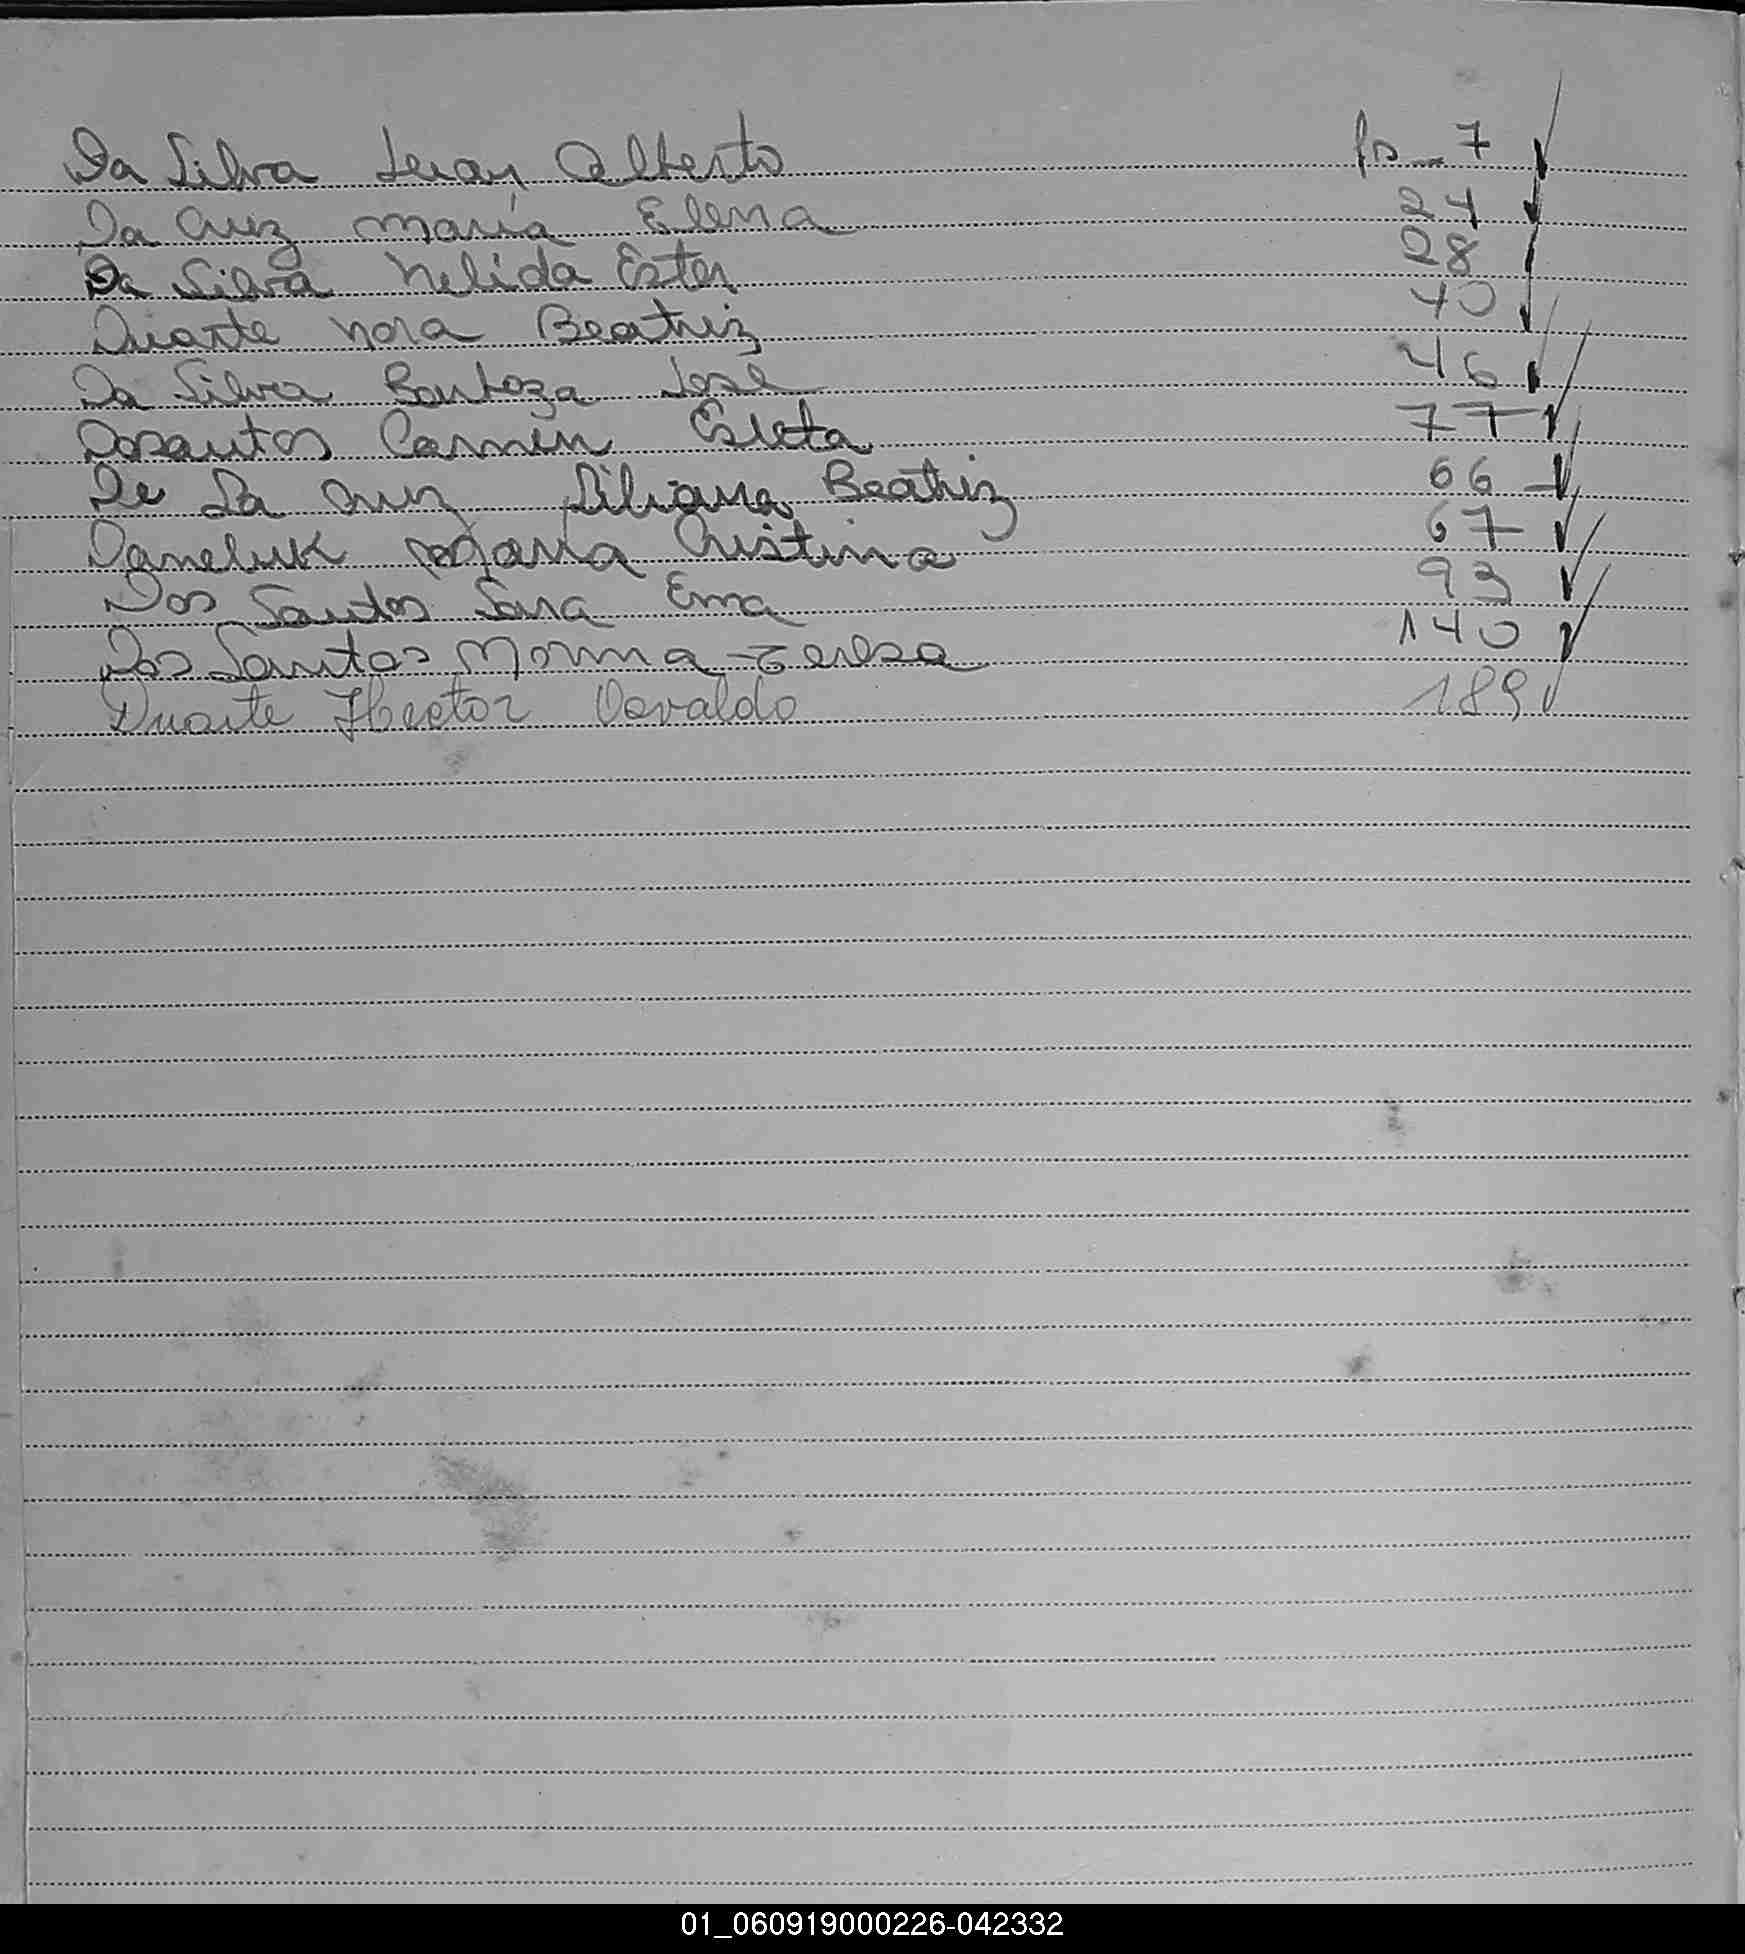 Da Silva Juan Alberto fs 7
Da Cruz Maria Elena 24
Da Silva Nelida Ester 28
Duarte Nora Beatriz 40
Da Silva José 46
Dosantos Carmen 77
De La Cruz Liliana Beatriz 66
Daneluk Maria Cristina 67
Dos Santos Sara Ema 93
Dos Santos Norma Teresa 140
Duarte Hector Osvaldo 189
01_060919000226-042332